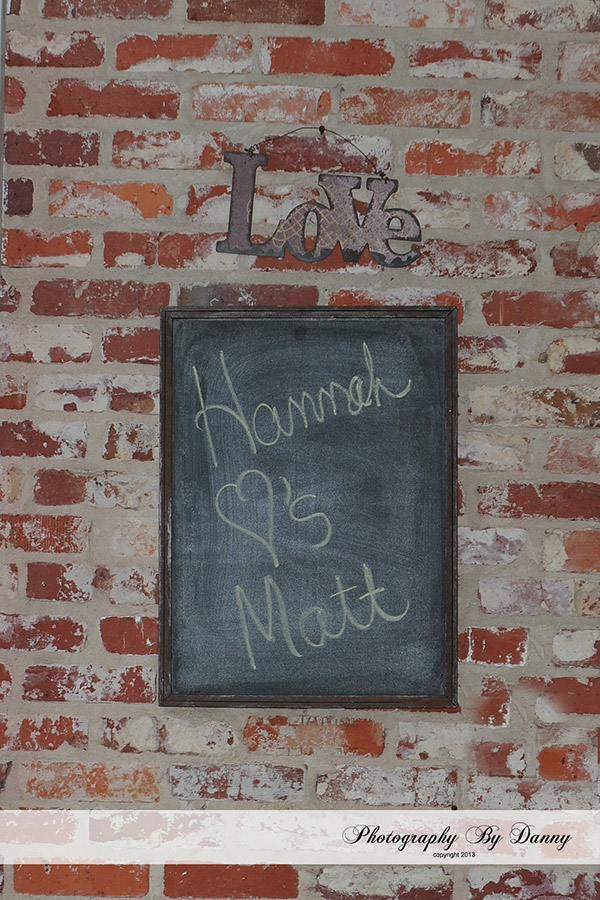 Love
Hannah
♡'s
Matt
Photography By Danny
copyright 2013